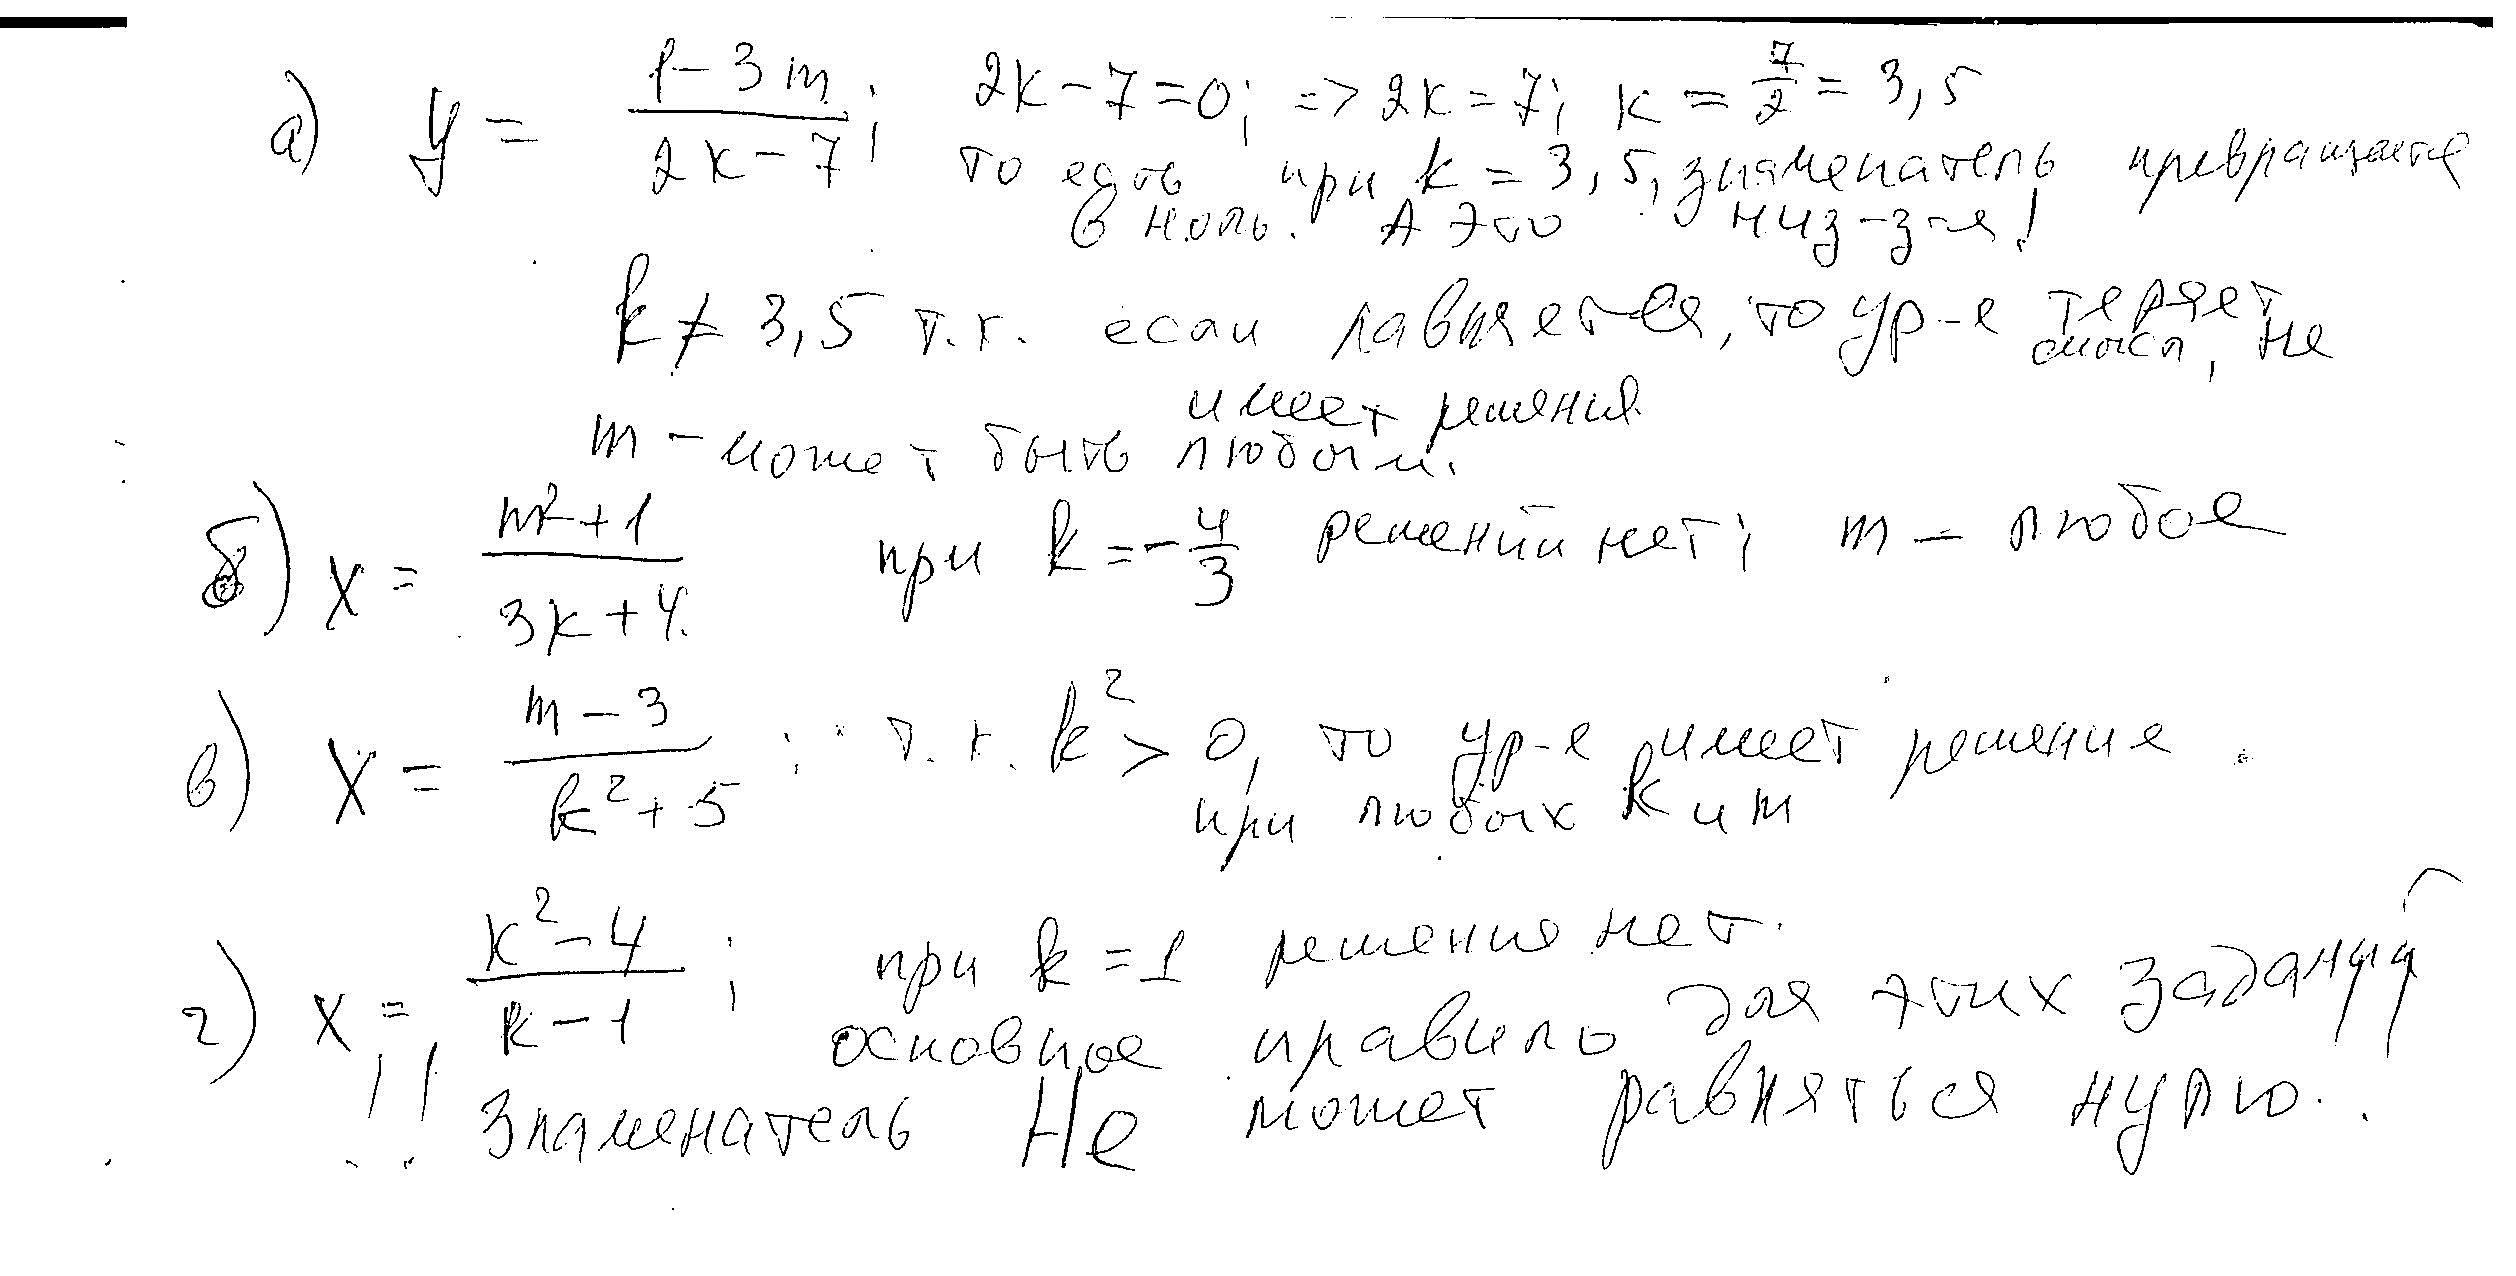 а) y = (1 - 3m)/(2k - 7); 2k - 7 = 0; => 2k = 7; k = 7/2 = 3,5
то есть при k = 3,5, знаменатель превращается
в ноль. А это низ-з-я!
k ≠ 3,5 т.к. если равняется, то ур-е теряет смысл, не
имеет решения
m - может быть любым.
б) x = (m² + 1)/(3k + 4) при k = -4/3 решений нет; m - любое
в) x = (m - 3)/(k² + 5); т.к. k² > 0, то ур-е имеет решение
при любых k и m
г) x = (k² - 4)/(k - 1); при k = 1 решения нет.
основное правило для этих заданий
!! Знаменатель Не может равняться нулю.